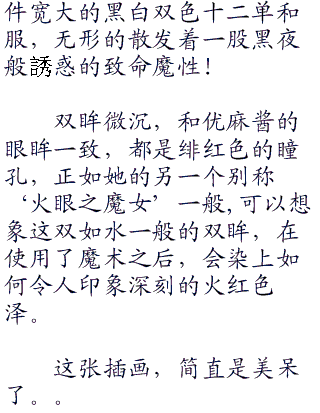 件宽大的黑白双色十二单和
服，无形的散发着一股黑夜
般誘惑的致命魔性！
双眸微沉，和优麻酱的
眼眸一致，都是绯红色的瞳
孔，正如她的另一个别称
‘火眼之魔女’一般,可以想
象这双如水一般的双眸，在
使用了魔术之后，会染上如
何令人印象深刻的火红色
泽。
这张插画，简直是美呆
了。。